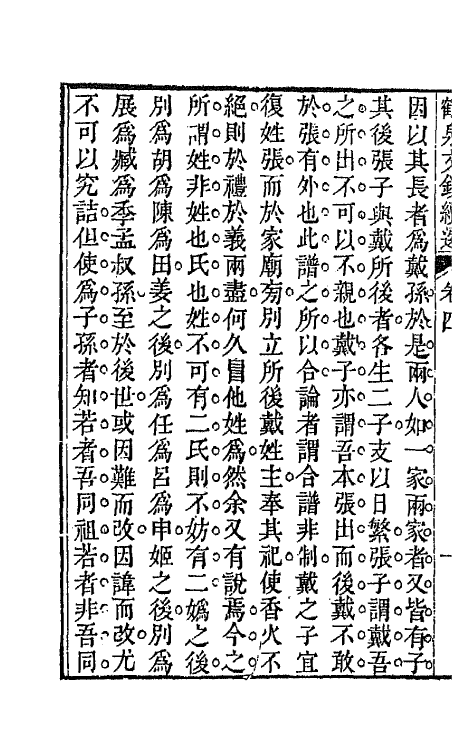 鶴泉文鈔續選 卷四 一
因以其長者爲戴孫於是兩人如一家兩家者又皆有子
其後張子與戴所後者各生二子支以日繁張子謂戴吾
之所出不可以不親也戴子亦謂吾本張出而後戴不敢
於張有外也此譜之所以合論者謂合譜非制戴之子宜
復姓張而於家廟旁別立所後戴姓主奉其祀使香火不
絕則於禮於義兩盡何久冒他姓爲然余又有說焉今之
所謂姓非姓也氏也姓不可有二氏則不妨有二嬀之後
別爲胡爲陳爲田姜之後別爲任爲呂爲申姬之後別爲
展爲臧爲季孟叔孫至於後世或因難而改因諱而改尤
不可以究詰但使爲子孫者知若者吾同祖若者非吾同